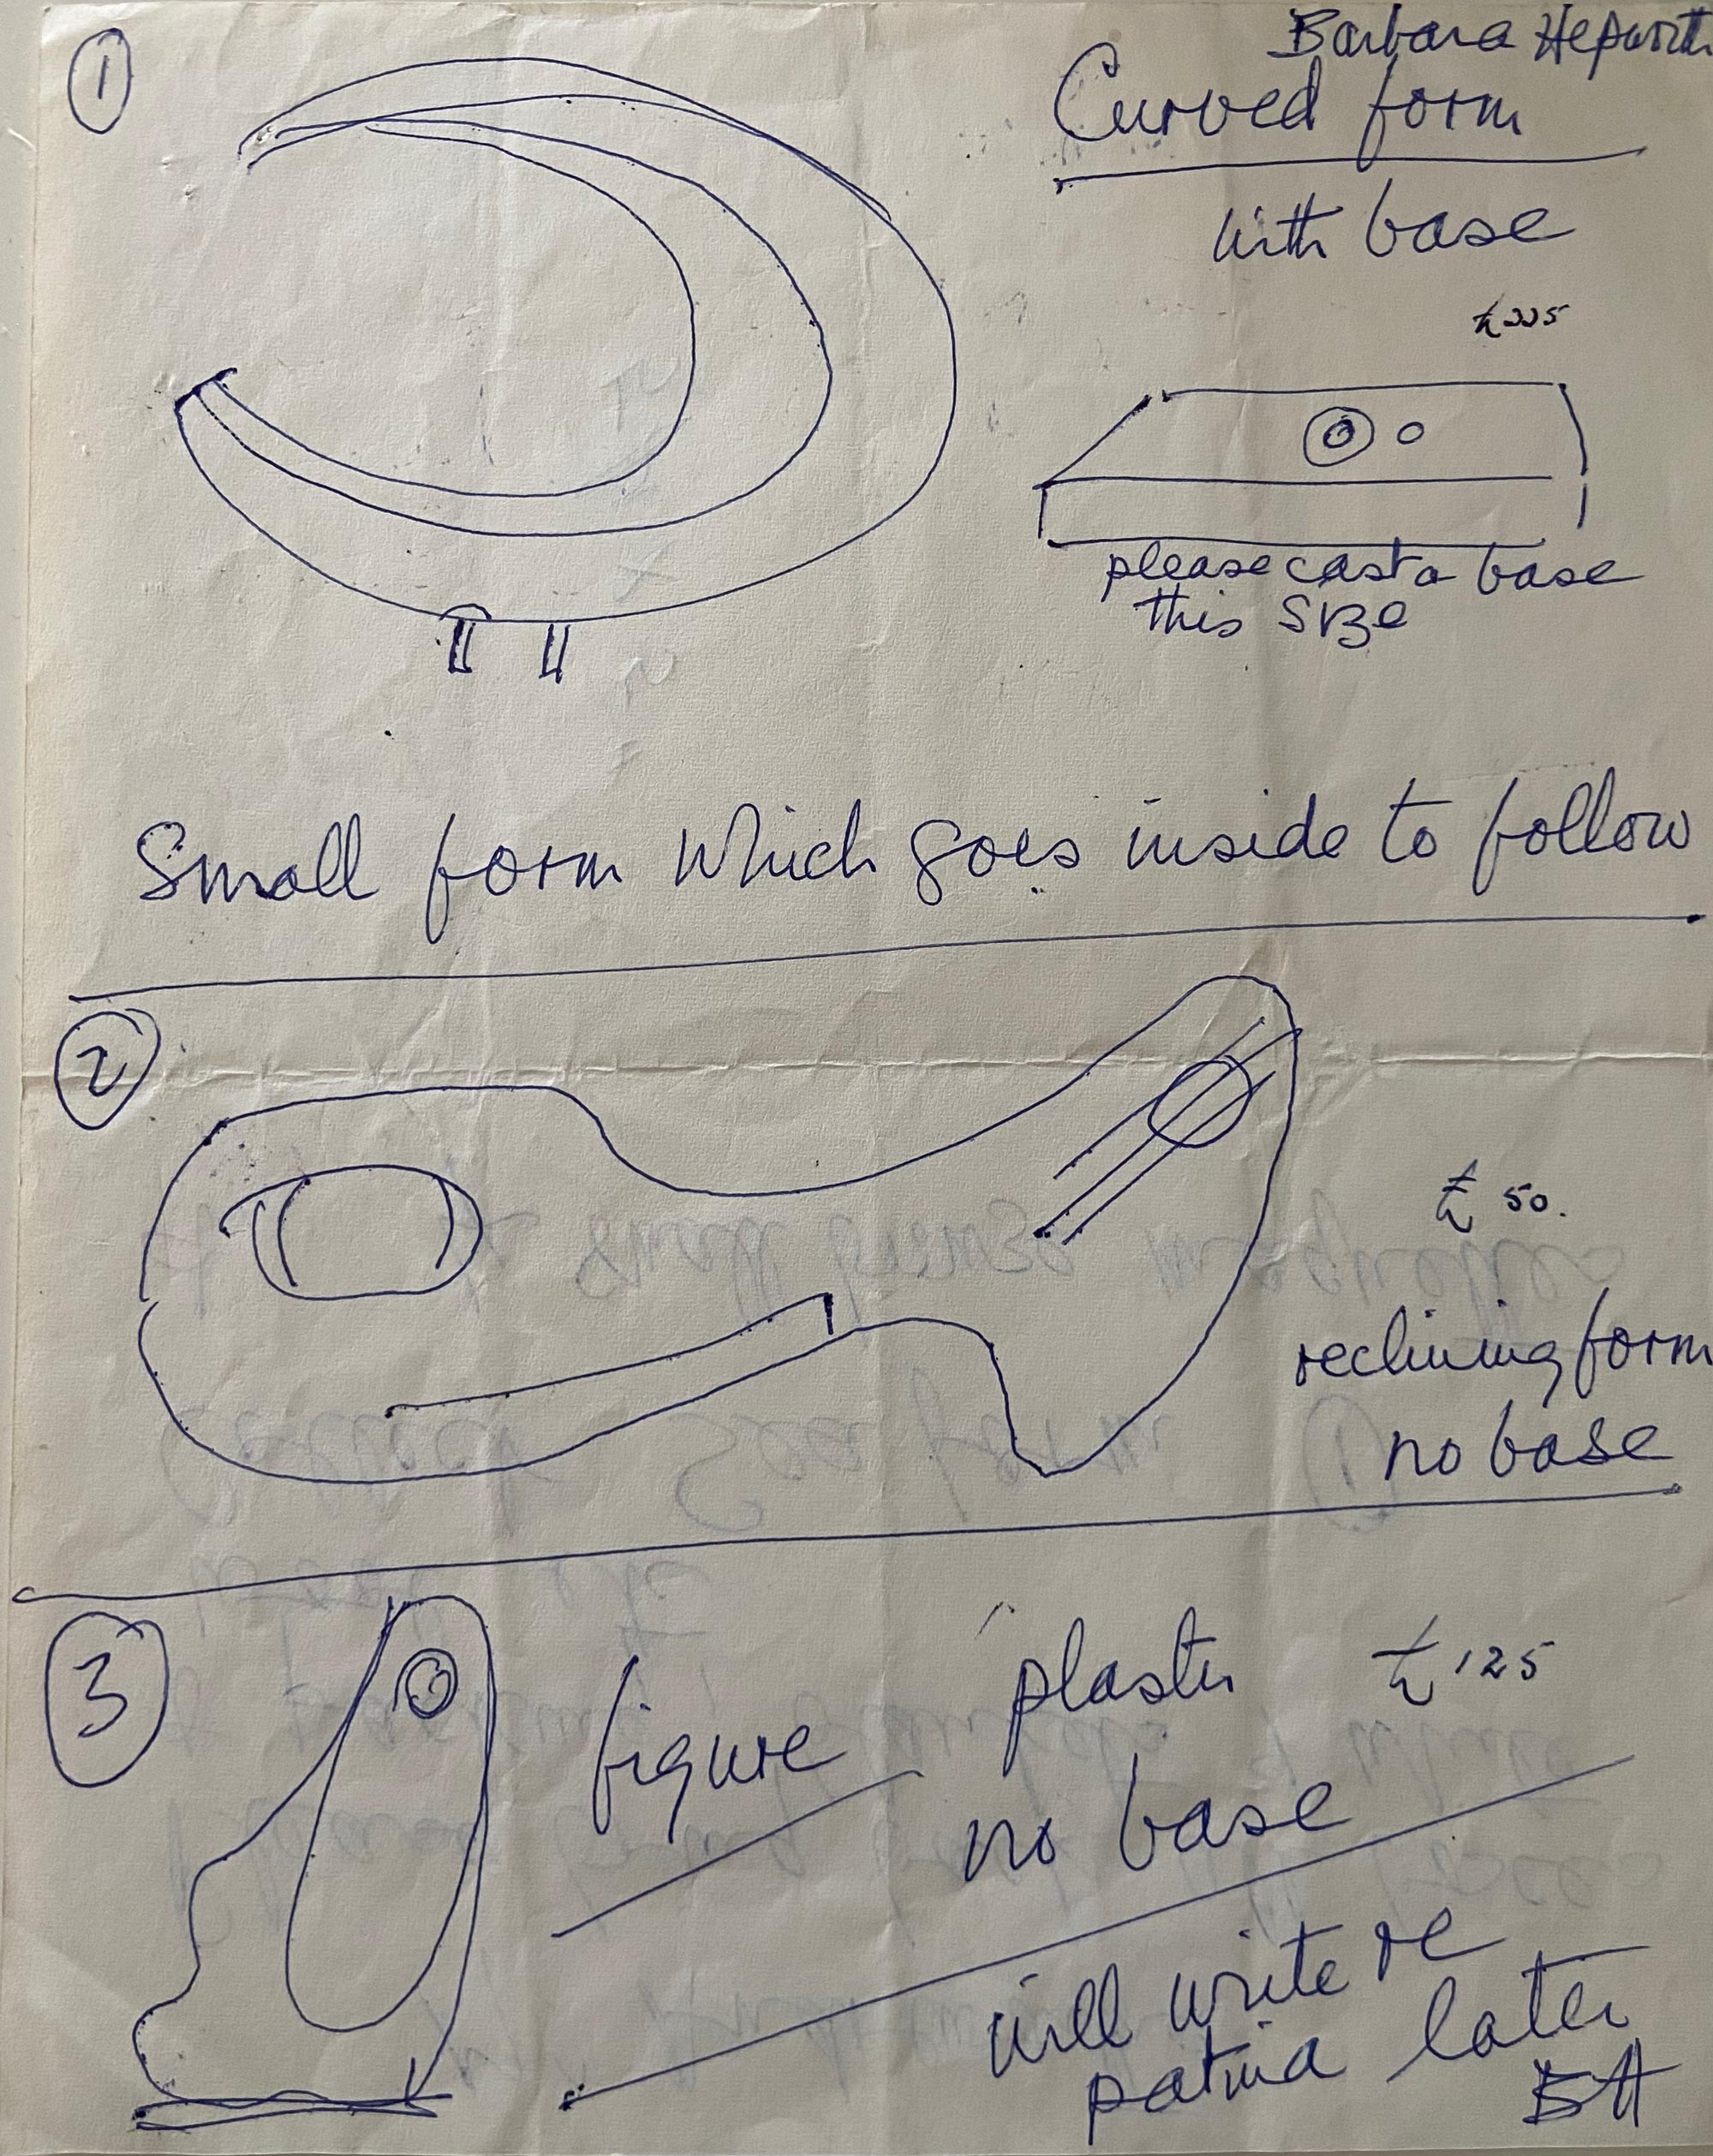 1
Barbara Hepworth
Curved form
with base
£225
please cast a base
this size
Small form which goes inside to follow
2
£50.
reclining form
no base
3
figure
plaster £125
no base
will write re
patina later
BH